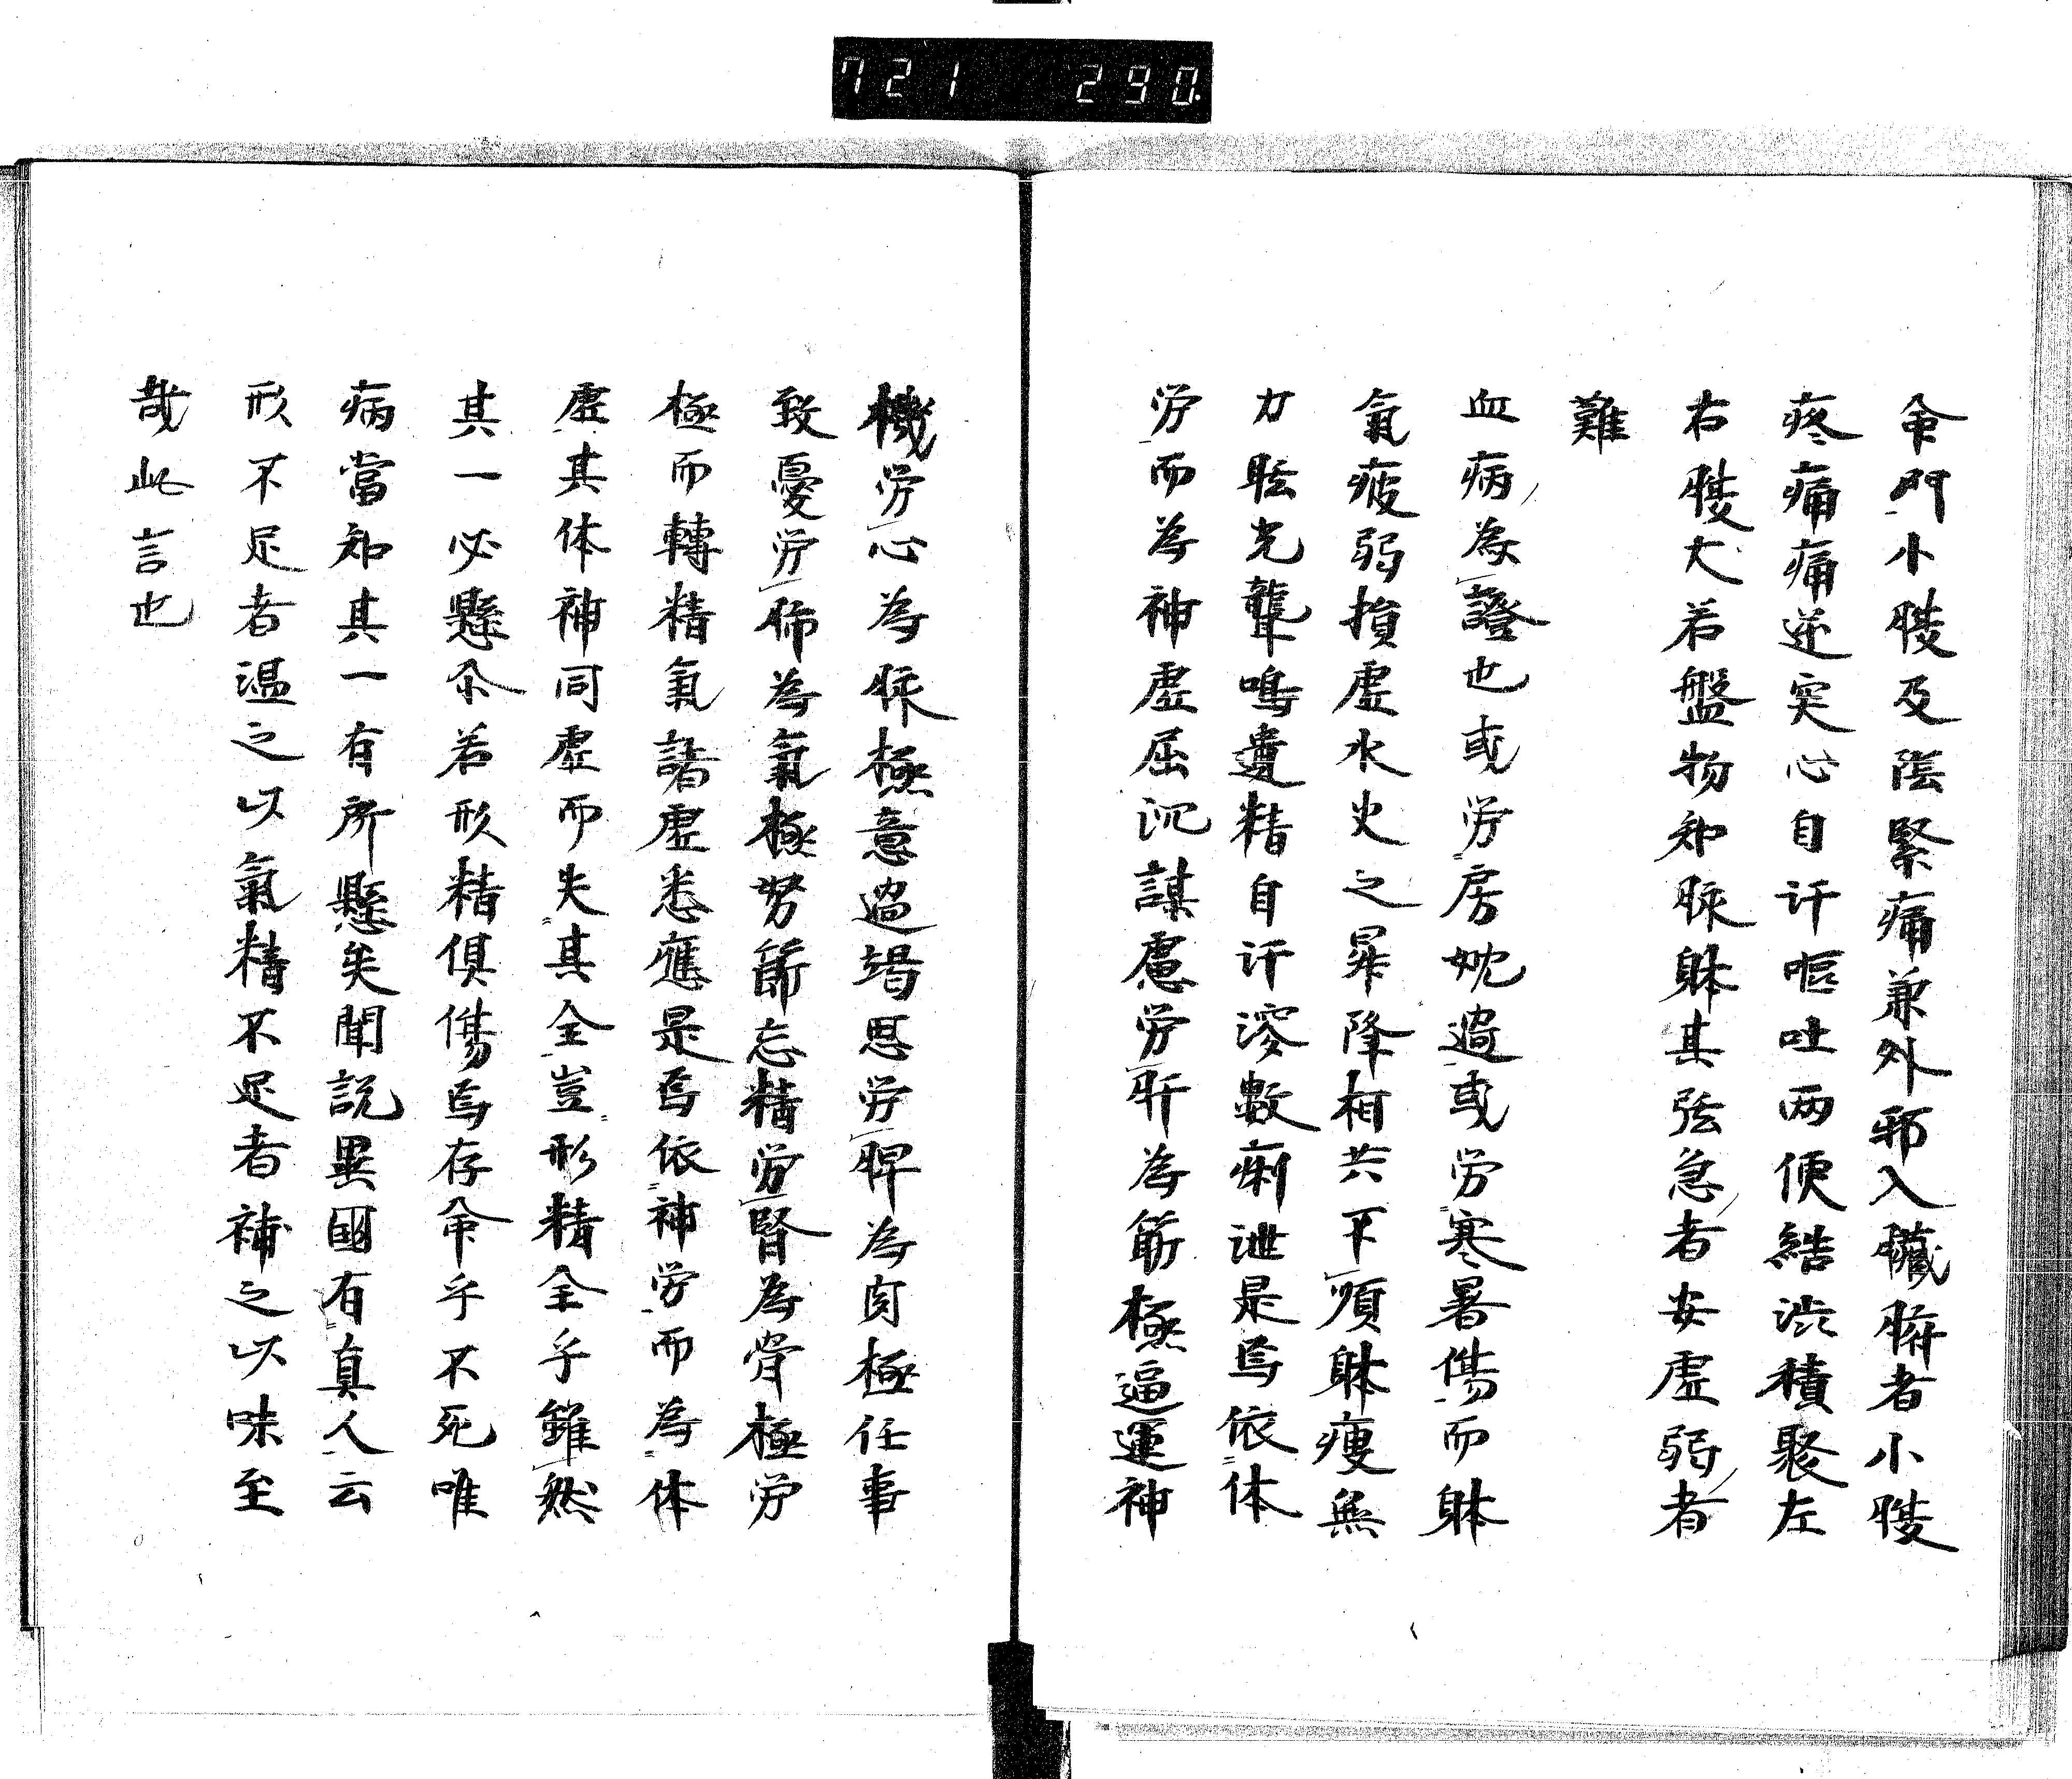 721 290.
命門小腹及陰緊痛兼外邪入臓腑者小腹
疼痛痛逆突心自汗嘔吐両便結渋積聚左
右腹大若盤物知脉躰其弦急者安虚弱者
難
血病為證也或労房軆過或労寒暑傷而躰
氣疲弱損虚水火之昇降相共不順躰痩無
力眩光聾鳴遺精自汗溲數痢泄是焉依体
労而為神虚屈沉謀慮労肝為筋極逼運神
機労心為脉極意過竭思労脾為肉極任事
致憂労肺為氣極努節忘精労腎為骨極労
極而轉精氣諸虚悉應是焉依神労而為体
虚其体神同虚而失其全豈形精全乎雖然
其一必懸尒若形精倶傷焉存命乎不死唯
病當知其一有所懸矣聞説異國有真人云
形不足者温之以氣精不足者補之以味至
哉此言也